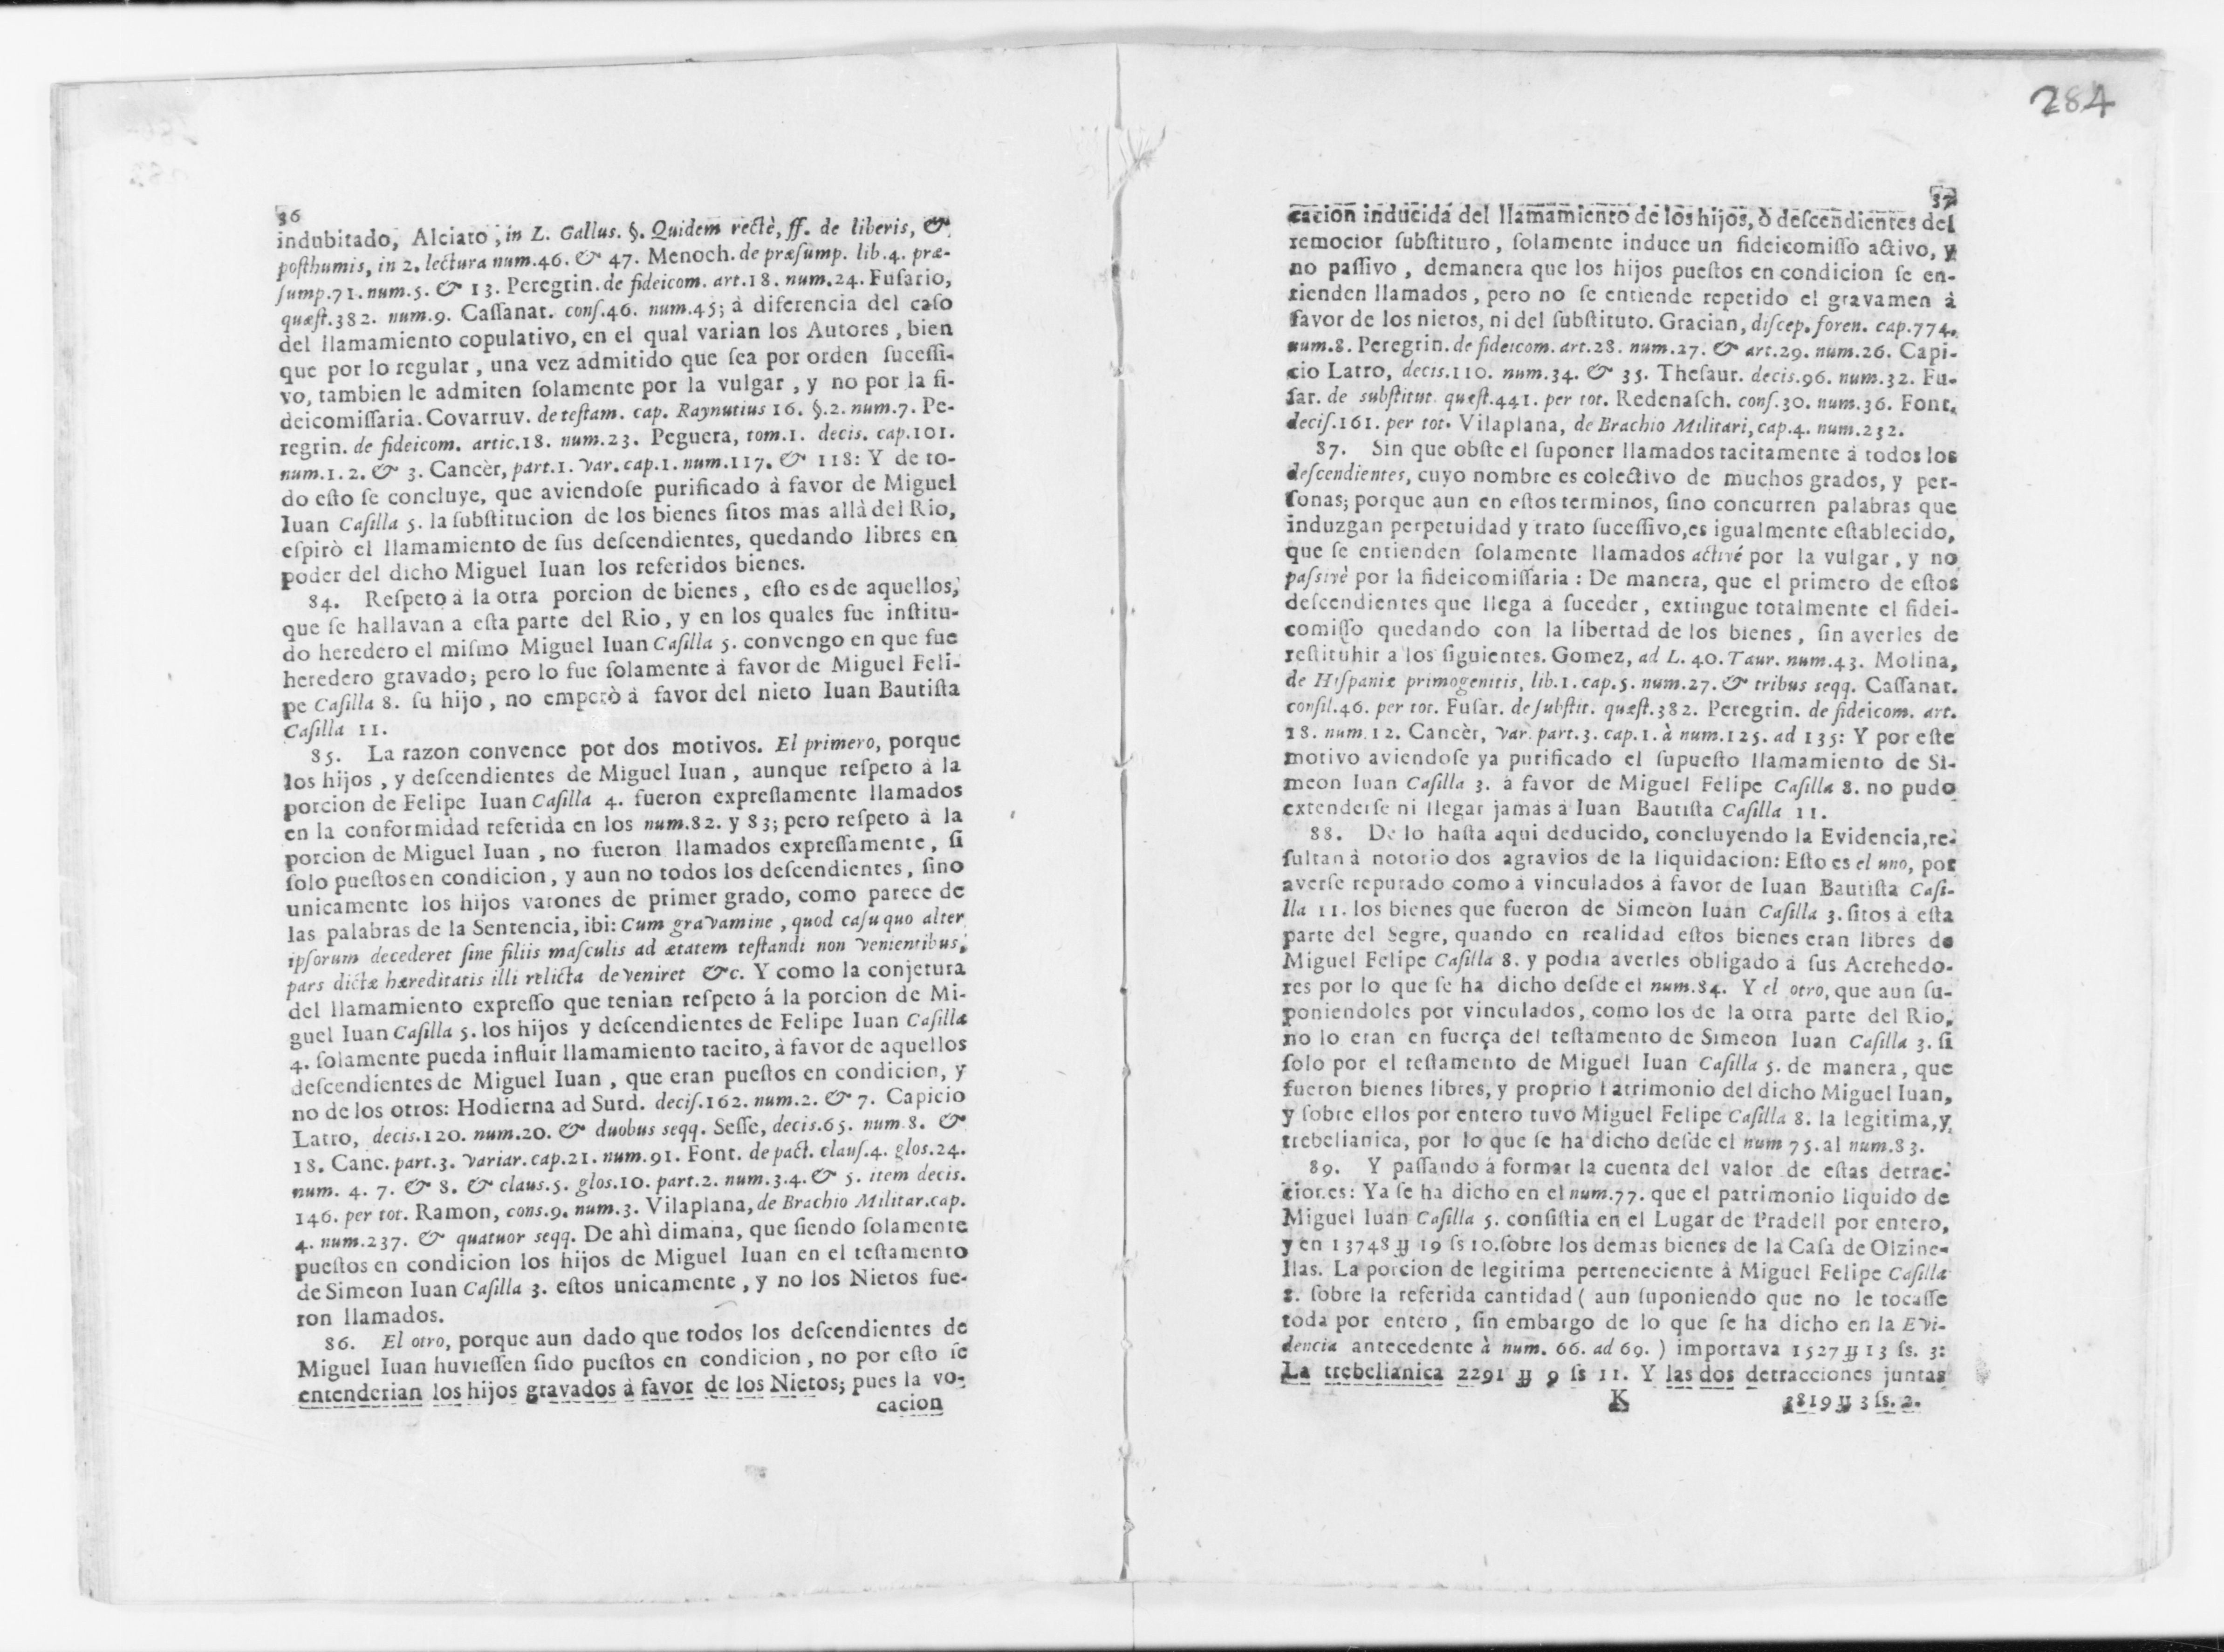 36
indubitado, Alciato, in L. Gallus. §. Quidem rectè, ff. de liberis, &
posthumis, in 2. lectura num.46. & 47. Menoch. de præsump. lib.4. præ-
sump.71. num.5. & 13. Peregrin. de fideicom. art.18. num.24. Fusario,
quæst.382. num.9. Cassanat. cons.46. num.45; à diferencia del caso
del llamamiento copulativo, en el qual varian los Autores, bien
que por lo regular, una vez admitido que sea por orden sucessi-
vo, tambien le admiten solamente por la vulgar, y no por la fi-
deicomissaria. Covarruv. de testam. cap. Raynutius 16. §.2. num.7. Pe-
regrin. de fideicom. artic.18. num.23. Peguera, tom.1. decis. cap.101.
num.1.2. & 3. Cancèr, part.1. var. cap.1. num.117. & 118: Y de to-
do esto se concluye, que aviendose purificado à favor de Miguel
Iuan Casilla 5. la substitucion de los bienes sitos mas allà del Rio,
espirò el llamamiento de sus descendientes, quedando libres en
poder del dicho Miguel Iuan los referidos bienes.
84. Respeto à la otra porcion de bienes, esto es de aquellos,
que se hallavan a esta parte del Rio, y en los quales fue institu-
do heredero el mismo Miguel Iuan Casilla 5. convengo en que fue
heredero gravado; pero lo fue solamente à favor de Miguel Feli-
pe Casilla 8. su hijo, no emperò à favor del nieto Iuan Bautista
Casilla 11.
85. La razon convence por dos motivos. El primero, porque
los hijos, y descendientes de Miguel Iuan, aunque respeto à la
porcion de Felipe Iuan Casilla 4. fueron expressamente llamados
en la conformidad referida en los num.82. y 83; pero respeto à la
porcion de Miguel Iuan, no fueron llamados expressamente, si
solo puestos en condicion, y aun no todos los descendientes, sino
unicamente los hijos varones de primer grado, como parece de
las palabras de la Sentencia, ibi: Cum gravamine, quod casu quo alter
ipsorum decederet sine filiis masculis ad ætatem testandi non venientibus,
pars dictæ hæreditatis illi relicta deveniret &c. Y como la conjetura
del llamamiento expresso que tenian respeto á la porcion de Mi-
guel Iuan Casilla 5. los hijos y descendientes de Felipe Iuan Casilla
4. solamente pueda influir llamamiento tacito, à favor de aquellos
descendientes de Miguel Iuan, que eran puestos en condicion, y
no de los otros: Hodierna ad Surd. decis.162. num.2. & 7. Capicio
Latro, decis.120. num.20. & duobus seqq. Sesse, decis.65. num.8. &
18. Canc. part.3. variar. cap.21. num.91. Font. de pact. claus.4. glos.24.
num. 4. 7. & 8. & claus.5. glos.10. part.2. num.3.4. & 5. item decis.
146. per tot. Ramon, cons.9. num.3. Vilaplana, de Brachio Militar.cap.
4. num.237. & quatuor seqq. De ahì dimana, que siendo solamente
puestos en condicion los hijos de Miguel Iuan en el testamento
de Simeon Iuan Casilla 3. estos unicamente, y no los Nietos fue-
ron llamados.
86. El otro, porque aun dado que todos los descendientes de
Miguel Iuan huviessen sido puestos en condicion, no por esto se
entenderian los hijos gravados à favor de los Nietos; pues la vo-
cacion
284
37
cacion inducida del llamamiento de los hijos, ò descendientes del
remocior substituto, solamente induce un fideicomisso activo, y
no passivo, demanera que los hijos puestos en condicion se en-
tienden llamados, pero no se entiende repetido el gravamen à
favor de los nietos, ni del substituto. Gracian, discep. foren. cap.774.
num.8. Peregrin. de fideicom. art.28. num.27. & art.29. num.26. Capi-
cio Latro, decis.110. num.34. & 35. Thesaur. decis.96. num.32. Fu-
sar. de substitut. quæst.441. per tot. Redenasch. cons.30. num.36. Font.
decis.161. per tot. Vilaplana, de Brachio Militari, cap.4. num.232.
87. Sin que obste el suponer llamados tacitamente à todos los
descendientes, cuyo nombre es colectivo de muchos grados, y per-
sonas; porque aun en estos terminos, sino concurren palabras que
induzgan perpetuidad y trato sucessivo, es igualmente establecido,
que se entienden solamente llamados activé por la vulgar, y no
passivè por la fideicomissaria: De manera, que el primero de estos
descendientes que llega á suceder, extingue totalmente el fidei-
comisso quedando con la libertad de los bienes, sin averles de
restituhir a los siguientes. Gomez, ad L. 40. Taur. num.43. Molina,
de Hispaniæ primogenitis, lib.1. cap.5. num.27. & tribus seqq. Cassanat.
consil.46. per tot. Fusar. de substit. quæst.382. Peregrin. de fideicom. art.
18. num.12. Cancèr, var. part.3. cap.1. à num.125. ad 135: Y por este
motivo aviendose ya purificado el supuesto llamamiento de Si-
meon Iuan Casilla 3. á favor de Miguel Felipe Casilla 8. no pudo
extenderse ni llegar jamàs à Iuan Bautista Casilla 11.
88. De lo hasta aqui deducido, concluyendo la Evidencia, re-
sultan à notorio dos agravios de la liquidacion: Esto es el uno, por
averse reputado como à vinculados á favor de Iuan Bautista Casi-
lla 11. los bienes que fueron de Simeon Iuan Casilla 3. sitos á esta
parte del Segre, quando en realidad estos bienes eran libres de
Miguel Felipe Casilla 8. y podia averles obligado à sus Acrehedo-
res por lo que se ha dicho desde el num.84. Y el otro, que aun su-
poniendoles por vinculados, como los de la otra parte del Rio,
no lo eran en fuerça del testamento de Simeon Iuan Casilla 3. si
solo por el testamento de Miguel Iuan Casilla 5. de manera, que
fueron bienes libres, y proprio Patrimonio del dicho Miguel Iuan,
y sobre ellos por entero tuvo Miguel Felipe Casilla 8. la legitima, y
trebelianica, por lo que se ha dicho desde el num 75. al num.83.
89. Y passando á formar la cuenta del valor de estas detrac-
ciones: Ya se ha dicho en el num.77. que el patrimonio liquido de
Miguel Iuan Casilla 5. consistia en el Lugar de Pradell por entero,
y en 13748 ȳ 19 ss 10. sobre los demas bienes de la Casa de Olzine-
llas. La porcion de legitima perteneciente à Miguel Felipe Casilla
8. sobre la referida cantidad ( aun suponiendo que no le tocasse
toda por entero, sin embargo de lo que se ha dicho en la Evi-
dencia antecedente à num. 66. ad 69. ) importava 1527 ȳ 13 ss. 3:
La trebelianica 2291 ȳ 9 ss 11. Y las dos detracciones juntas
K 3819 ȳ 3 ss. 2.